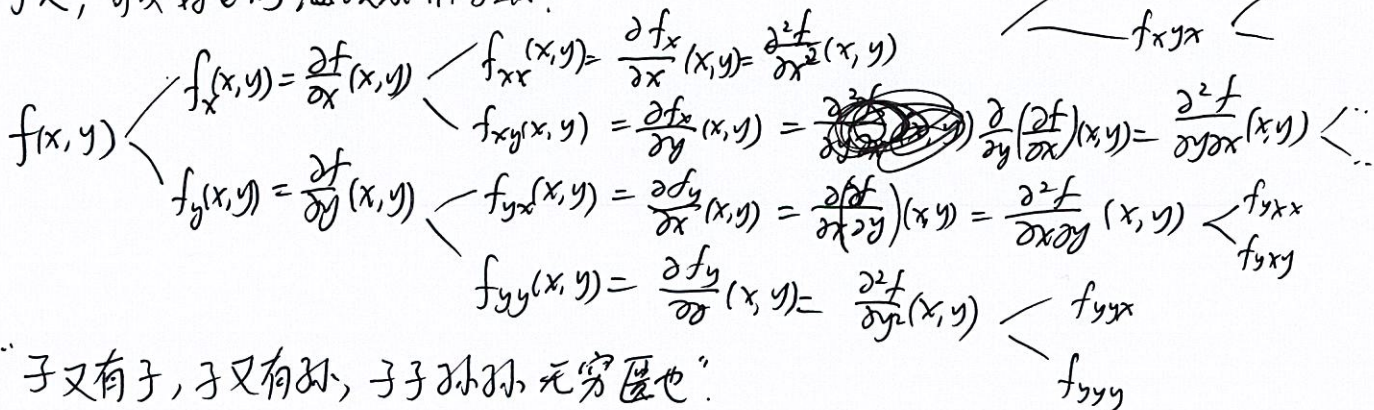 f_{xyx}
f_x(x,y) = \frac{∂f}{∂x}(x,y)
f_{xx}(x,y) = \frac{∂f_x}{∂x}(x,y) = \frac{∂^2f}{∂x^2}(x,y)
f(x,y)
f_{xy}(x,y) = \frac{∂f_x}{∂y}(x,y) = \frac{∂}{∂y}(\frac{∂f}{∂x})(x,y) = \frac{∂^2f}{∂y∂x}(x,y)
f_y(x,y) = \frac{∂f}{∂y}(x,y)
f_{yx}(x,y) = \frac{∂f_y}{∂x}(x,y) = \frac{∂}{∂x}(\frac{∂f}{∂y})(x,y) = \frac{∂^2f}{∂x∂y}(x,y)
f_{yxx}
f_{yxy}
f_{yy}(x,y) = \frac{∂f_y}{∂y}(x,y) = \frac{∂^2f}{∂y^2}(x,y)
f_{yyx}
f_{yyy}
"子又有子,子又有孙,子子孙孙无穷匮也"